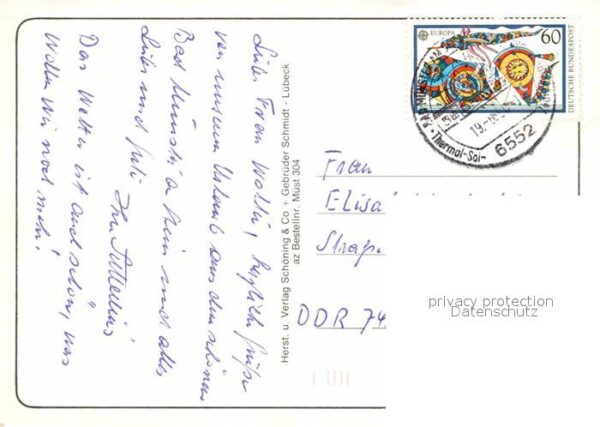 Liebe Frau Wollin, herzliche Grüße
von unserem Urlaub aus dem schönen
Bad Münster a. Stein und alles
Liebe und Gute
Ihre
Das Wetter ist auch schön, was
wollen wir noch mehr!
Herst. u. Verlag Schöning & Co + Gebrüder Schmidt - Lübeck
az Bestellnr. Müst 304
EUROPA
60
DEUTSCHE BUNDESPOST
BAD MÜNSTER
19.
·Thermal-Sol-
6552
Frau
Elisa
Straße
DDR 74
privacy protection
Datenschutz